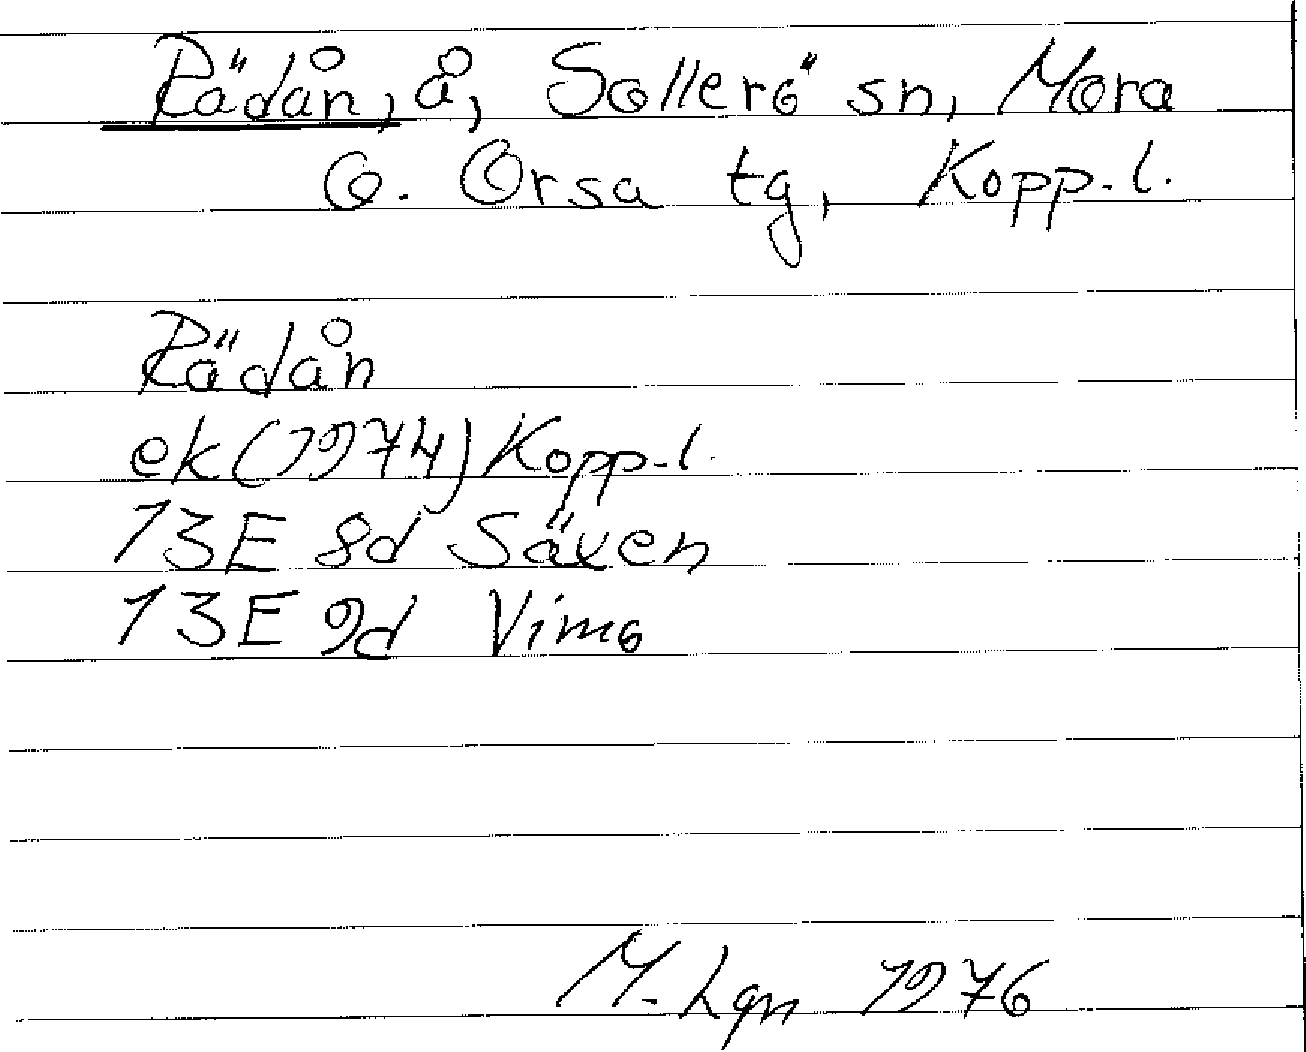 Rädån, å, Sollerö sn, Mora
o. Orsa tg, Kopp.l.
Rädån
ek(1974) Kopp.l.
13E 8d Säxen
13E 9d Vimo
M. Lgn 1976